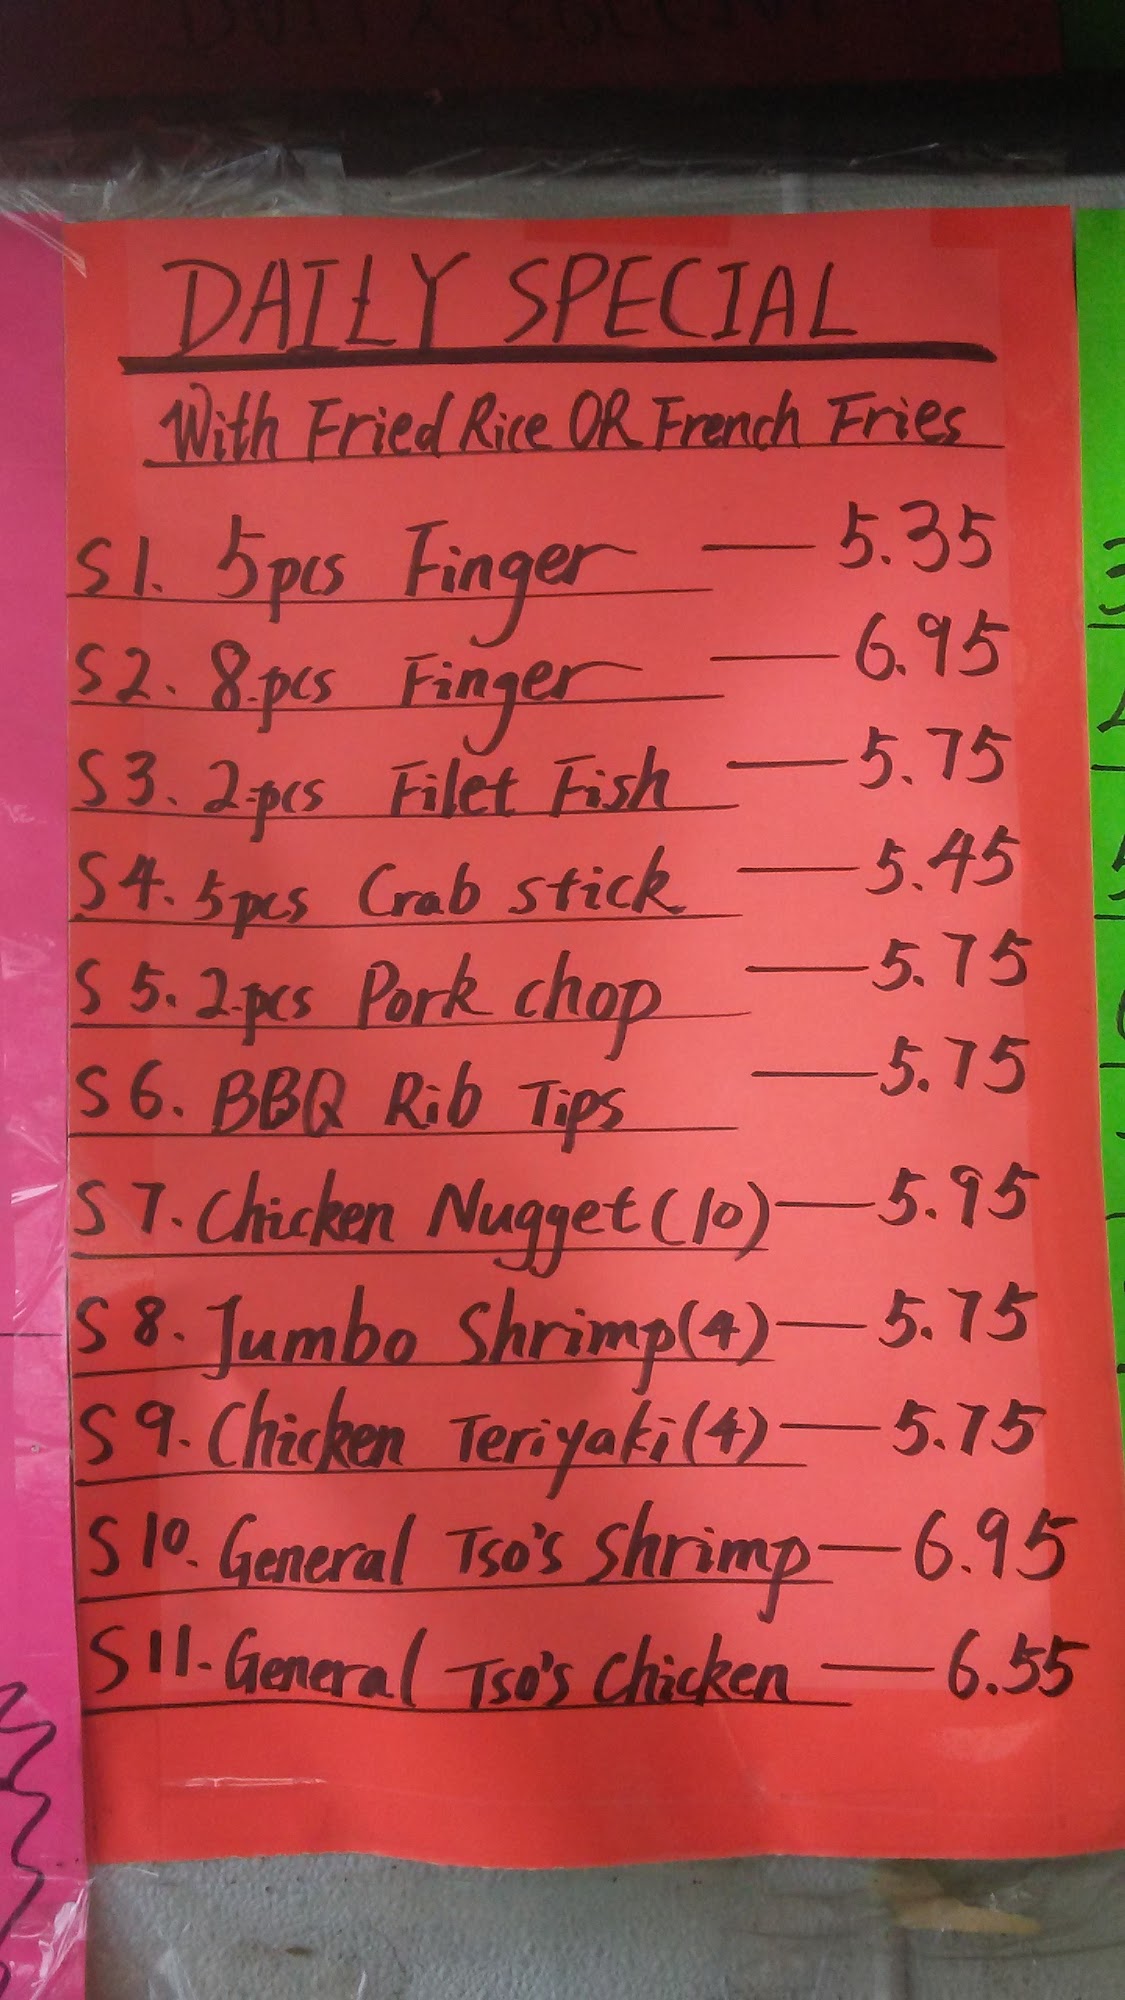 DAILY SPECIAL
With Fried Rice OR French Fries
S1. 5pcs Finger — 5.35
S2. 8.pcs Finger — 6.95
S3. 2.pcs Filet Fish — 5.75
S4. 5pcs Crab stick — 5.45
S5. 2.pcs Pork chop — 5.75
S6. BBQ Rib Tips — 5.75
S7. Chicken Nugget (10) — 5.95
S8. Jumbo Shrimp (4) — 5.75
S9. Chicken Teriyaki (4) — 5.75
S10. General Tso's Shrimp — 6.95
S11. General Tso's Chicken — 6.55